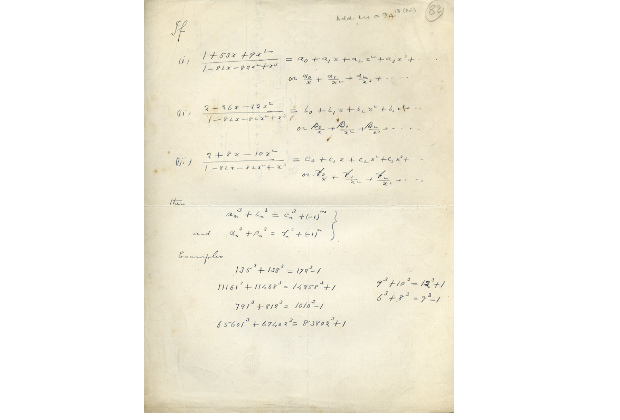 82
If
(i) (1 + 53x + 9x²)/(1 − 82x − 82x² + x³) = a₀ + a₁x + a₂x² + a₃x³ + ...
or α₀/x + α₁/x² + α₂/x³ + ...
(ii) (2 − 26x − 12x²)/(1 − 82x − 82x² + x³) = b₀ + b₁x + b₂x² + b₃x³ + ...
or β₀/x + β₁/x² + β₂/x³ + ...
(iii) (2 + 8x − 10x²)/(1 − 82x − 82x² + x³) = c₀ + c₁x + c₂x² + c₃x³ + ...
or γ₀/x + γ₁/x² + γ₂/x³ + ...
then
aₙ³ + bₙ³ = cₙ³ + (−1)ⁿ
and αₙ³ + βₙ³ = γₙ³ + (−1)ⁿ }
Examples
135³ + 138³ = 172³ − 1
11161³ + 11468³ = 14258³ + 1
9³ + 10³ = 12³ + 1
6³ + 8³ = 9³ − 1
791³ + 812³ = 1010³ − 1
65601³ + 67402³ = 83802³ + 1